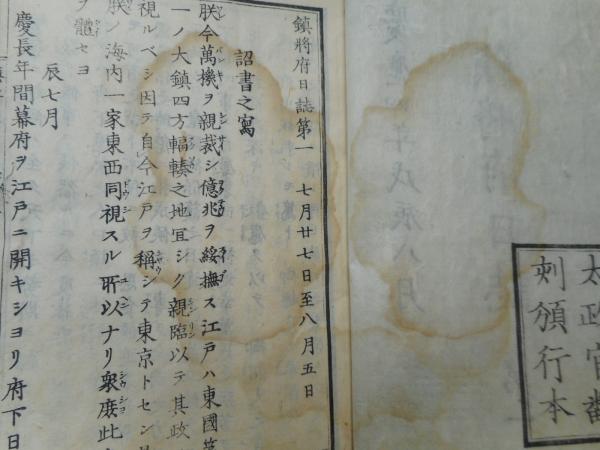 太政官飜
刻頒行本
鎮將府日誌第一　七月廿七日至八月五日
詔書之寫
朕今萬機ヲ親裁シ億兆ヲ綏撫ス江戸ハ東國第
一ノ大鎮四方輻輳之地宜シク親臨以テ其政
視ルベシ因テ自今江戸ヲ稱シテ東京トセン
朕ノ海内一家東西同視スル所以ナリ衆庶此
ヲ體セヨ
辰七月
慶長年間幕府ヲ江戸ニ開キショリ府下日